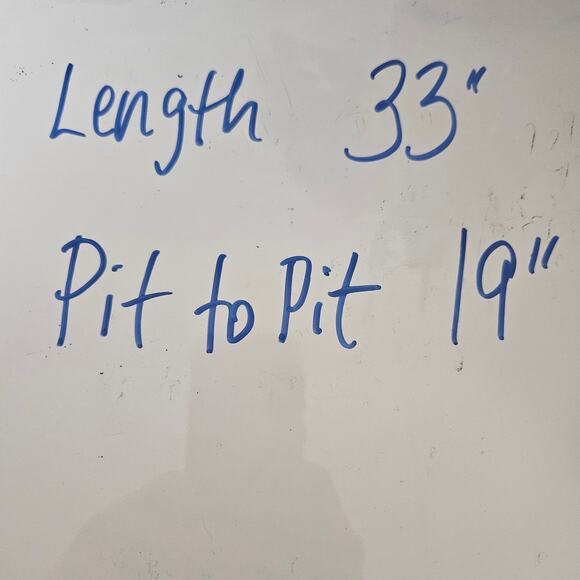 Length 33"
Pit to Pit 19"